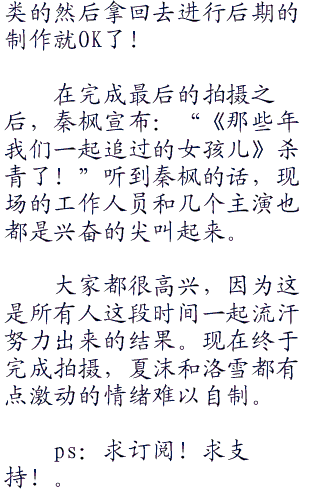 类的然后拿回去进行后期的
制作就OK了！
在完成最后的拍摄之
后，秦枫宣布：“《那些年
我们一起追过的女孩儿》杀
青了！”听到秦枫的话，现
场的工作人员和几个主演也
都是兴奋的尖叫起来。
大家都很高兴，因为这
是所有人这段时间一起流汗
努力出来的结果。现在终于
完成拍摄，夏沫和洛雪都有
点激动的情绪难以自制。
ps：求订阅！求支
持！。